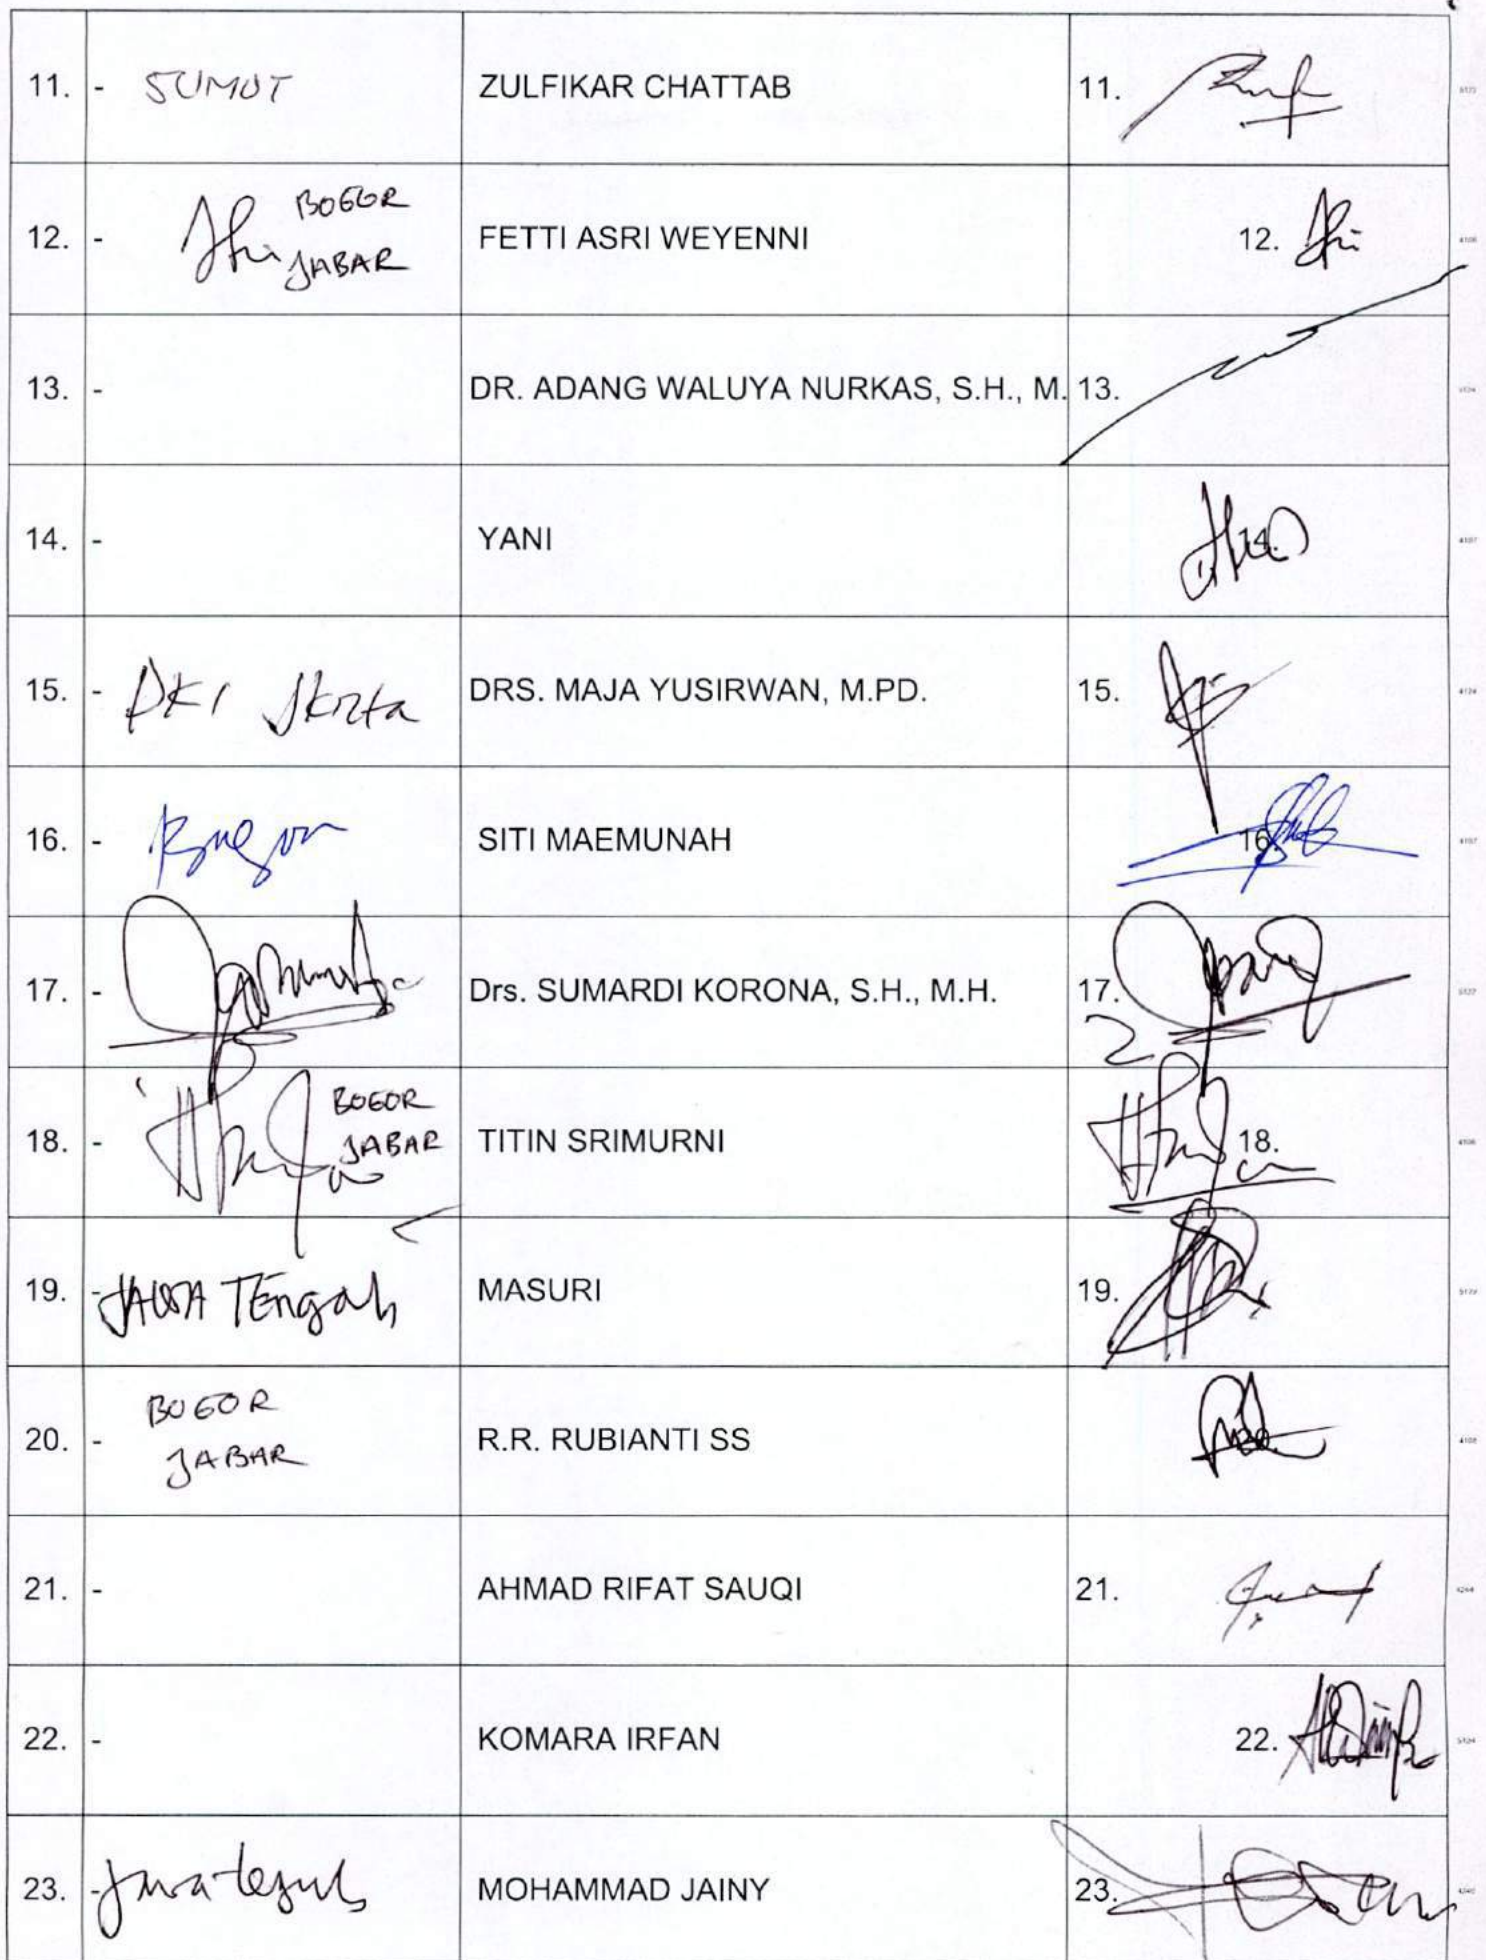 11. - SUMUT ZULFIKAR CHATTAB 11.
12. - BOGOR JABAR FETTI ASRI WEYENNI 12.
13. - DR. ADANG WALUYA NURKAS, S.H., M. 13.
14. - YANI 14.
15. - DKI Jkrta DRS. MAJA YUSIRWAN, M.PD. 15.
16. - SITI MAEMUNAH 16.
17. - Drs. SUMARDI KORONA, S.H., M.H. 17.
18. - BOGOR JABAR TITIN SRIMURNI 18.
19. - JAWA TEngah MASURI 19.
20. - BOGOR JABAR R.R. RUBIANTI SS
21. - AHMAD RIFAT SAUQI 21.
22. - KOMARA IRFAN 22.
23. - MOHAMMAD JAINY 23.